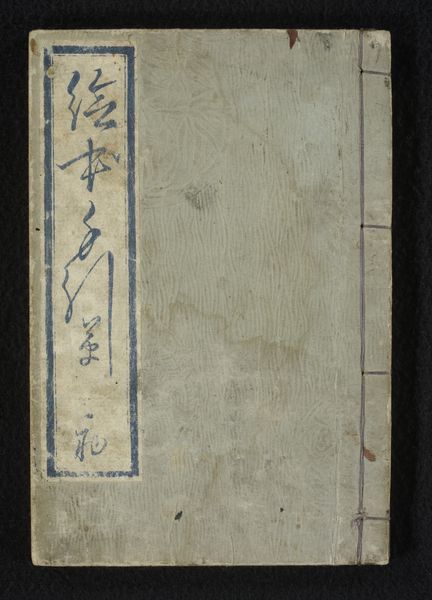 絵本手引草